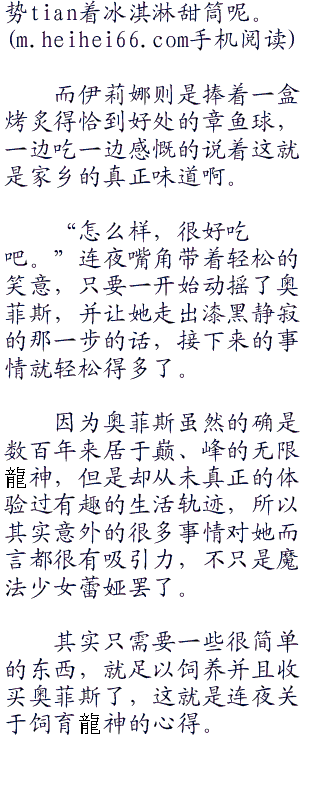 势tian着冰淇淋甜筒呢。
(m.heihei66.com手机阅读)
而伊莉娜则是捧着一盒
烤炙得恰到好处的章鱼球，
一边吃一边感慨的说着这就
是家乡的真正味道啊。
“怎么样，很好吃
吧。”连夜嘴角带着轻松的
笑意，只要一开始动摇了奥
菲斯，并让她走出漆黑静寂
的那一步的话，接下来的事
情就轻松得多了。
因为奥菲斯虽然的确是
数百年来居于巅、峰的无限
龍神，但是却从未真正的体
验过有趣的生活轨迹，所以
其实意外的很多事情对她而
言都很有吸引力，不只是魔
法少女蕾娅罢了。
其实只需要一些很简单
的东西，就足以饲养并且收
买奥菲斯了，这就是连夜关
于饲育龍神的心得。